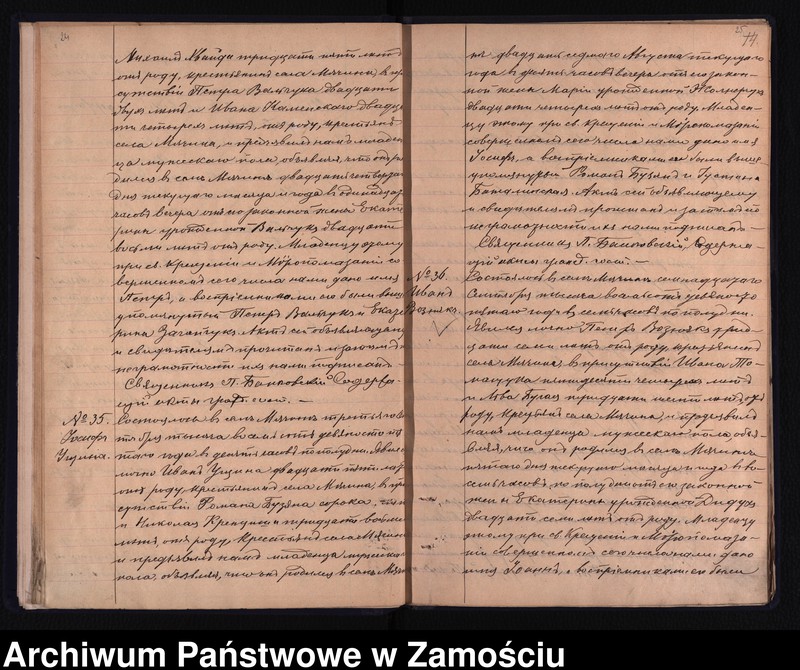 24
Михаил тридцати пяти лет
от роду, крестьянин села Мячина, в при
сутствіи Петра Вальчука двадцати
двух лет и Ивана Каменского двадца
ти четырех лет, от роду, крестьян
села Мячина, и предъявил нам младен
ца мужескаго пола, объявляя, что он ро
дился в селе Мячине двадцать четвертаго
дня текущаго месяца и года в одинадцать
часов вечера от его законной жены Екате
рины урожденной Вальчук двадцати
восьми лет от роду. Младенцу этому
при св. крещеніи и Мѵропомазаніи со
вершенном сего числа нами дано имя
Петр, а воспріемниками его были выше
упомянутый Петр Вальчук и Екате
рина. Акт сей объявляющему
и свидетелям прочитан и за их
неграмотностью нами подписан
Священник П. Баньковскій Содержа
щій акты гражд. сост. —
№ 35.
Іосиф
Ущина.
Состоялось в селе Мячине третьяго сен
тября тысяча восемьсот девяносто пя
таго года в десять часов пополудни. Явился
лично Иван Ущина двадцати пяти лет
от роду, крестьянин села Мячина, в при
сутствіи Романа Бузяна сорока
и Николая тридцати восьми
лет от роду, крестьян села Мячина
и предъявил нам младенца мужескаго
пола, объявляя, что он родился в селе Мячи
25
не двадцать седьмого Августа текущаго
года в девять часов вечера от его закон
ной жены Маріи урожденной
двадцати четырех лет от роду. Младен
цу этому при св. крещеніи и Мѵропомазаніи
совершенном сего числа нами дано имя
Іосиф, а воспріемниками его были выше
упомянутый Роман Бузян и
Акт сей объявляющему
и свидетелям прочитан и за их
неграмотностью нами подписан
Священник П. Баньковскій, Содержа
щій акты гражд. сост. —
№ 36.
Иван
Возняк.
Состоялось в селе Мячине семнадцатаго
Сентября тысяча восемьсот девяносто
пятаго года в семь часов пополудни.
Явился лично Петр Возняк трид
цати семи лет от роду, крестьянин
села Мячина в присутствіи Ивана То
пятидесяти четырех лет
и Льва тридцати шести лет от
роду, крестьян села Мячина, и предъявил
нам младенца мужескаго пола объя
вляя, что он родился в селе Мячине
пятого дня текущаго месяца и года в во
семь часов по полудни от его законной
жены Екатерины урожденной Дидух
двадцати семи лет от роду. Младенцу
этому при св. крещеніи и Мѵропомаза
ніи совершенном сего числа нами дано
имя Іоанн, а воспріемниками его были
Archiwum Państwowe w Zamościu